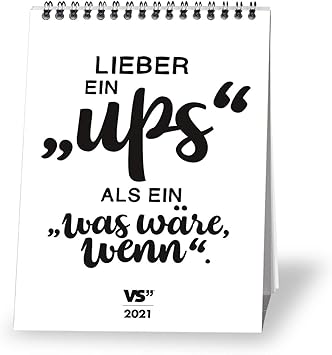 LIEBER
EIN
„ups“
ALS EIN
„was wäre,
wenn“.
VS”
2021